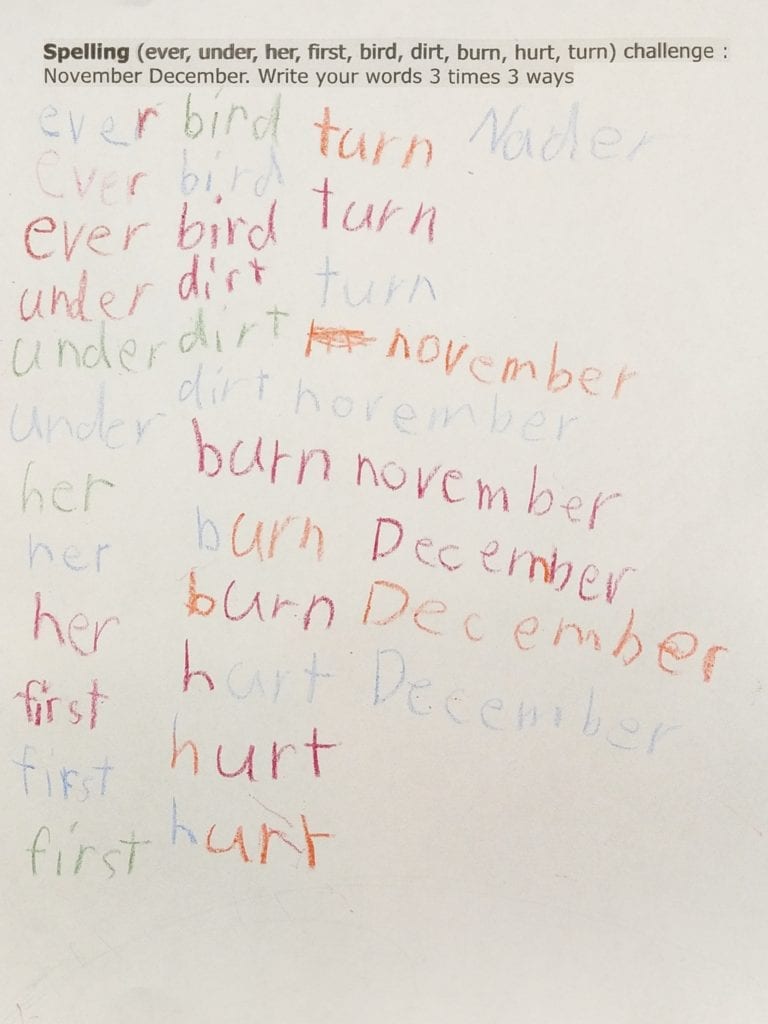 Spelling (ever, under, her, first, bird, dirt, burn, hurt, turn) challenge :
November December. Write your words 3 times 3 ways
ever bird turn Nader
ever bird turn
ever bird turn
under dirt november
under dirt november
under dirt november
her burn December
her burn December
her burn December
first hurt
first hurt
first hurt